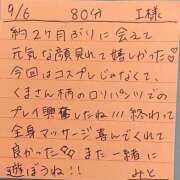 9/6 80分 I様
約2ヶ月ぶりに会えて
元気な顔見れて嬉しかった♡
今回はコスプレじゃなくて、
くまさん柄のロリパンツでの
プレイ興奮したね!!! 終わって
全身マッサージ喜んでくれて
良かった♪♪ また一緒に
遊ぼうね!! みと